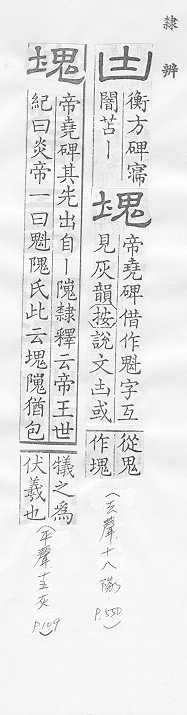 隸辨
凷
衡方碑
闇苫丨
塊
帝堯碑借作魁字互
見灰韻按說文凷或
從鬼
作塊
(去聲十八隊 P.550)
塊
帝堯碑其先出自丨隗隸釋云帝王世
紀曰炎帝一曰魁隗氏此云塊隗猶包
犧之為
伏羲也
(平聲十五灰 P.109)